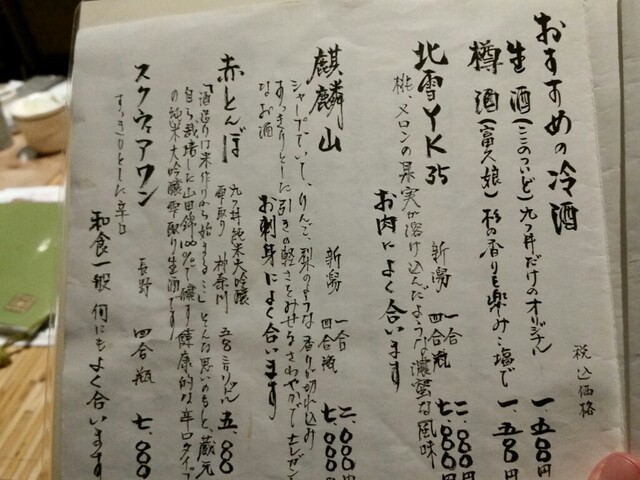 おすすめの冷酒
税込価格
生酒(ここのついど)九つ井だけのオリジナル 一、五〇〇円
樽酒(富久娘)杉の香りも楽み…塩で 一、五〇〇円
北雪YK35 新潟 一合 二、〇〇〇円
四合瓶 七、〇〇〇円
桃、メロンの果実が溶け込んだような濃蜜な風味
お肉によく合います
麒麟山 新潟 一合 二、〇〇〇円
四合瓶 七、〇〇〇円
シャープでいて、りんご、梨のような香りが切れ込み
すっきりとした引きの軽さをみせるさわやかでエレガント
なお酒
お刺身によく合います
赤とんぼ 九つ井純米大吟醸
雫取り 神奈川 五
「酒造りは米作りから始まる…」そんな思いのもと、蔵元
自ら栽培した山田錦100%で醸す健康的な辛口タイプ
の純米大吟醸雫取り生酒です
スクウェアワン 長野 四合瓶 七、〇〇〇
すっきりとした辛口
和食一般 何にもよく合います